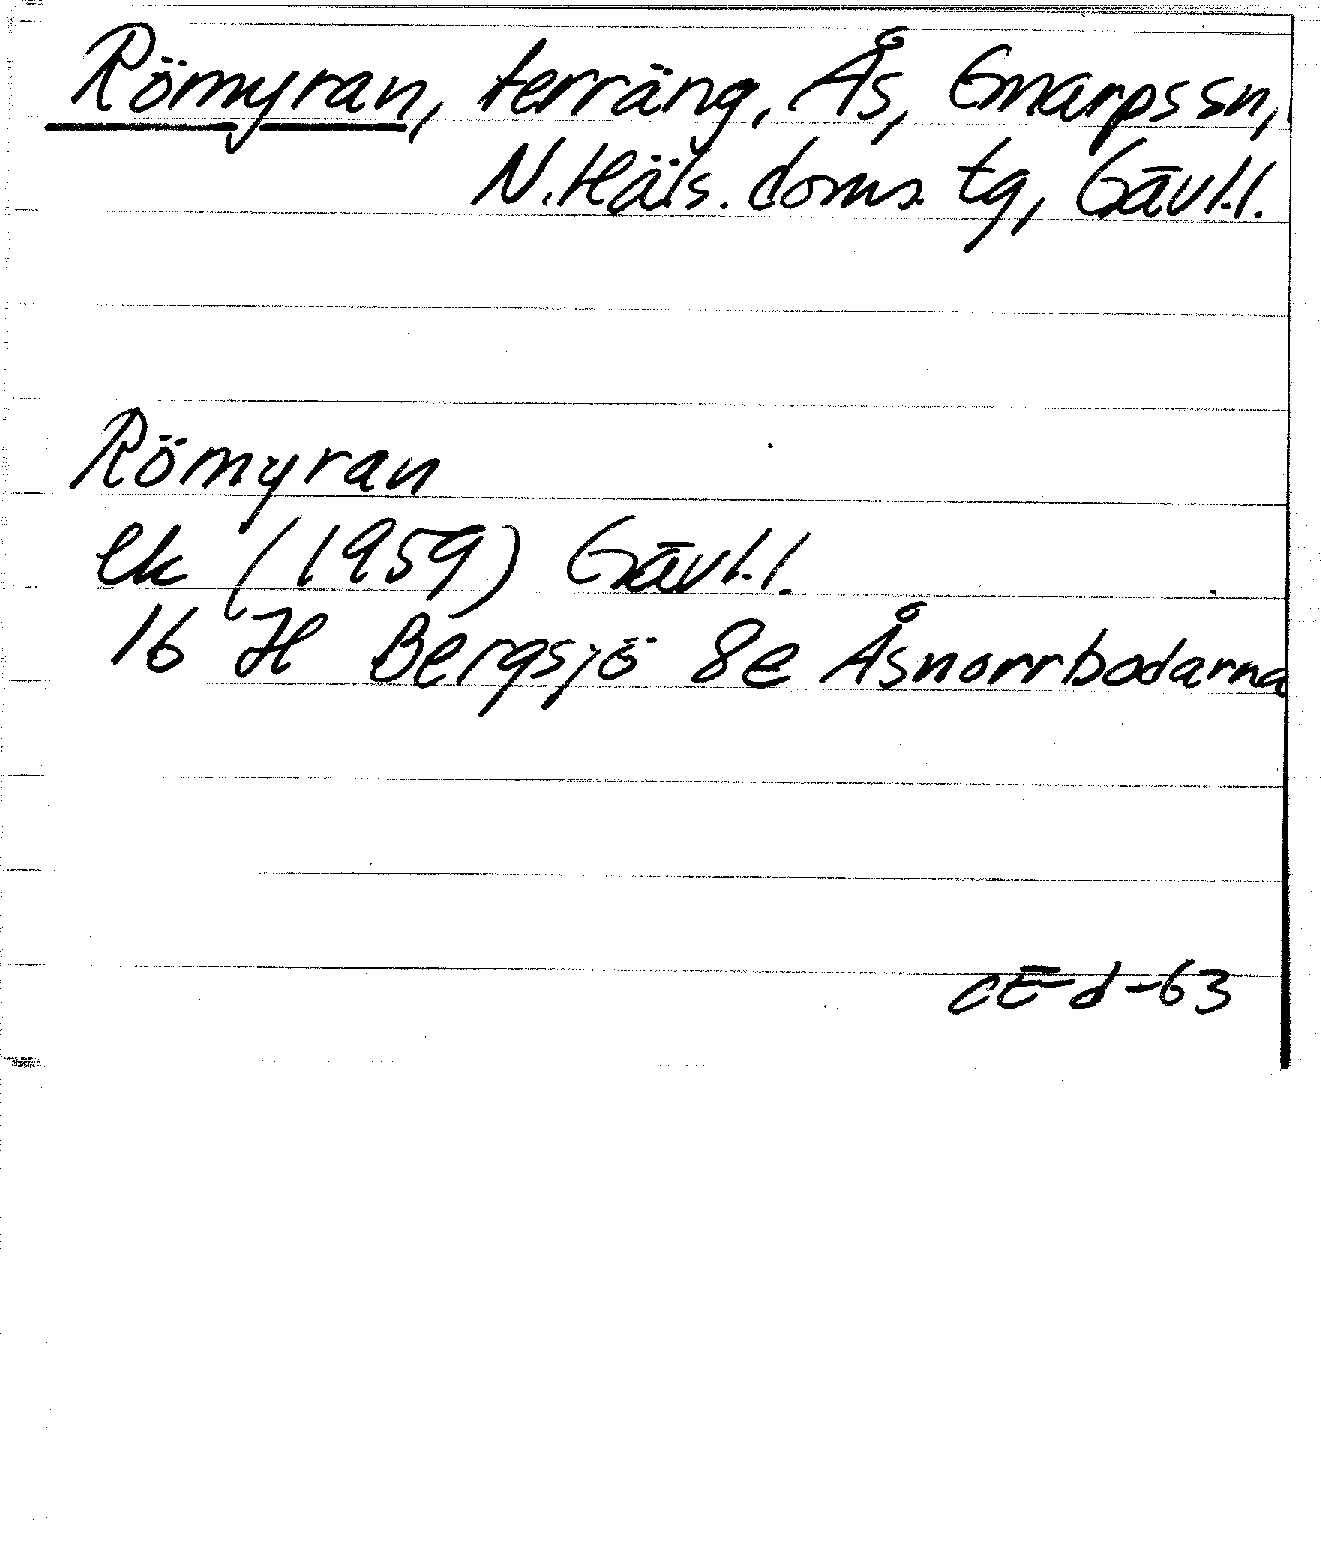 Römyran, terräng, Ås, Gnarps sn,
N. Häls. doms. tg, Gävl. l.
Römyran
ek (1959) Gävl. l.
16 H Bergsjö 8e Åsnorrbodarna
CE d -63